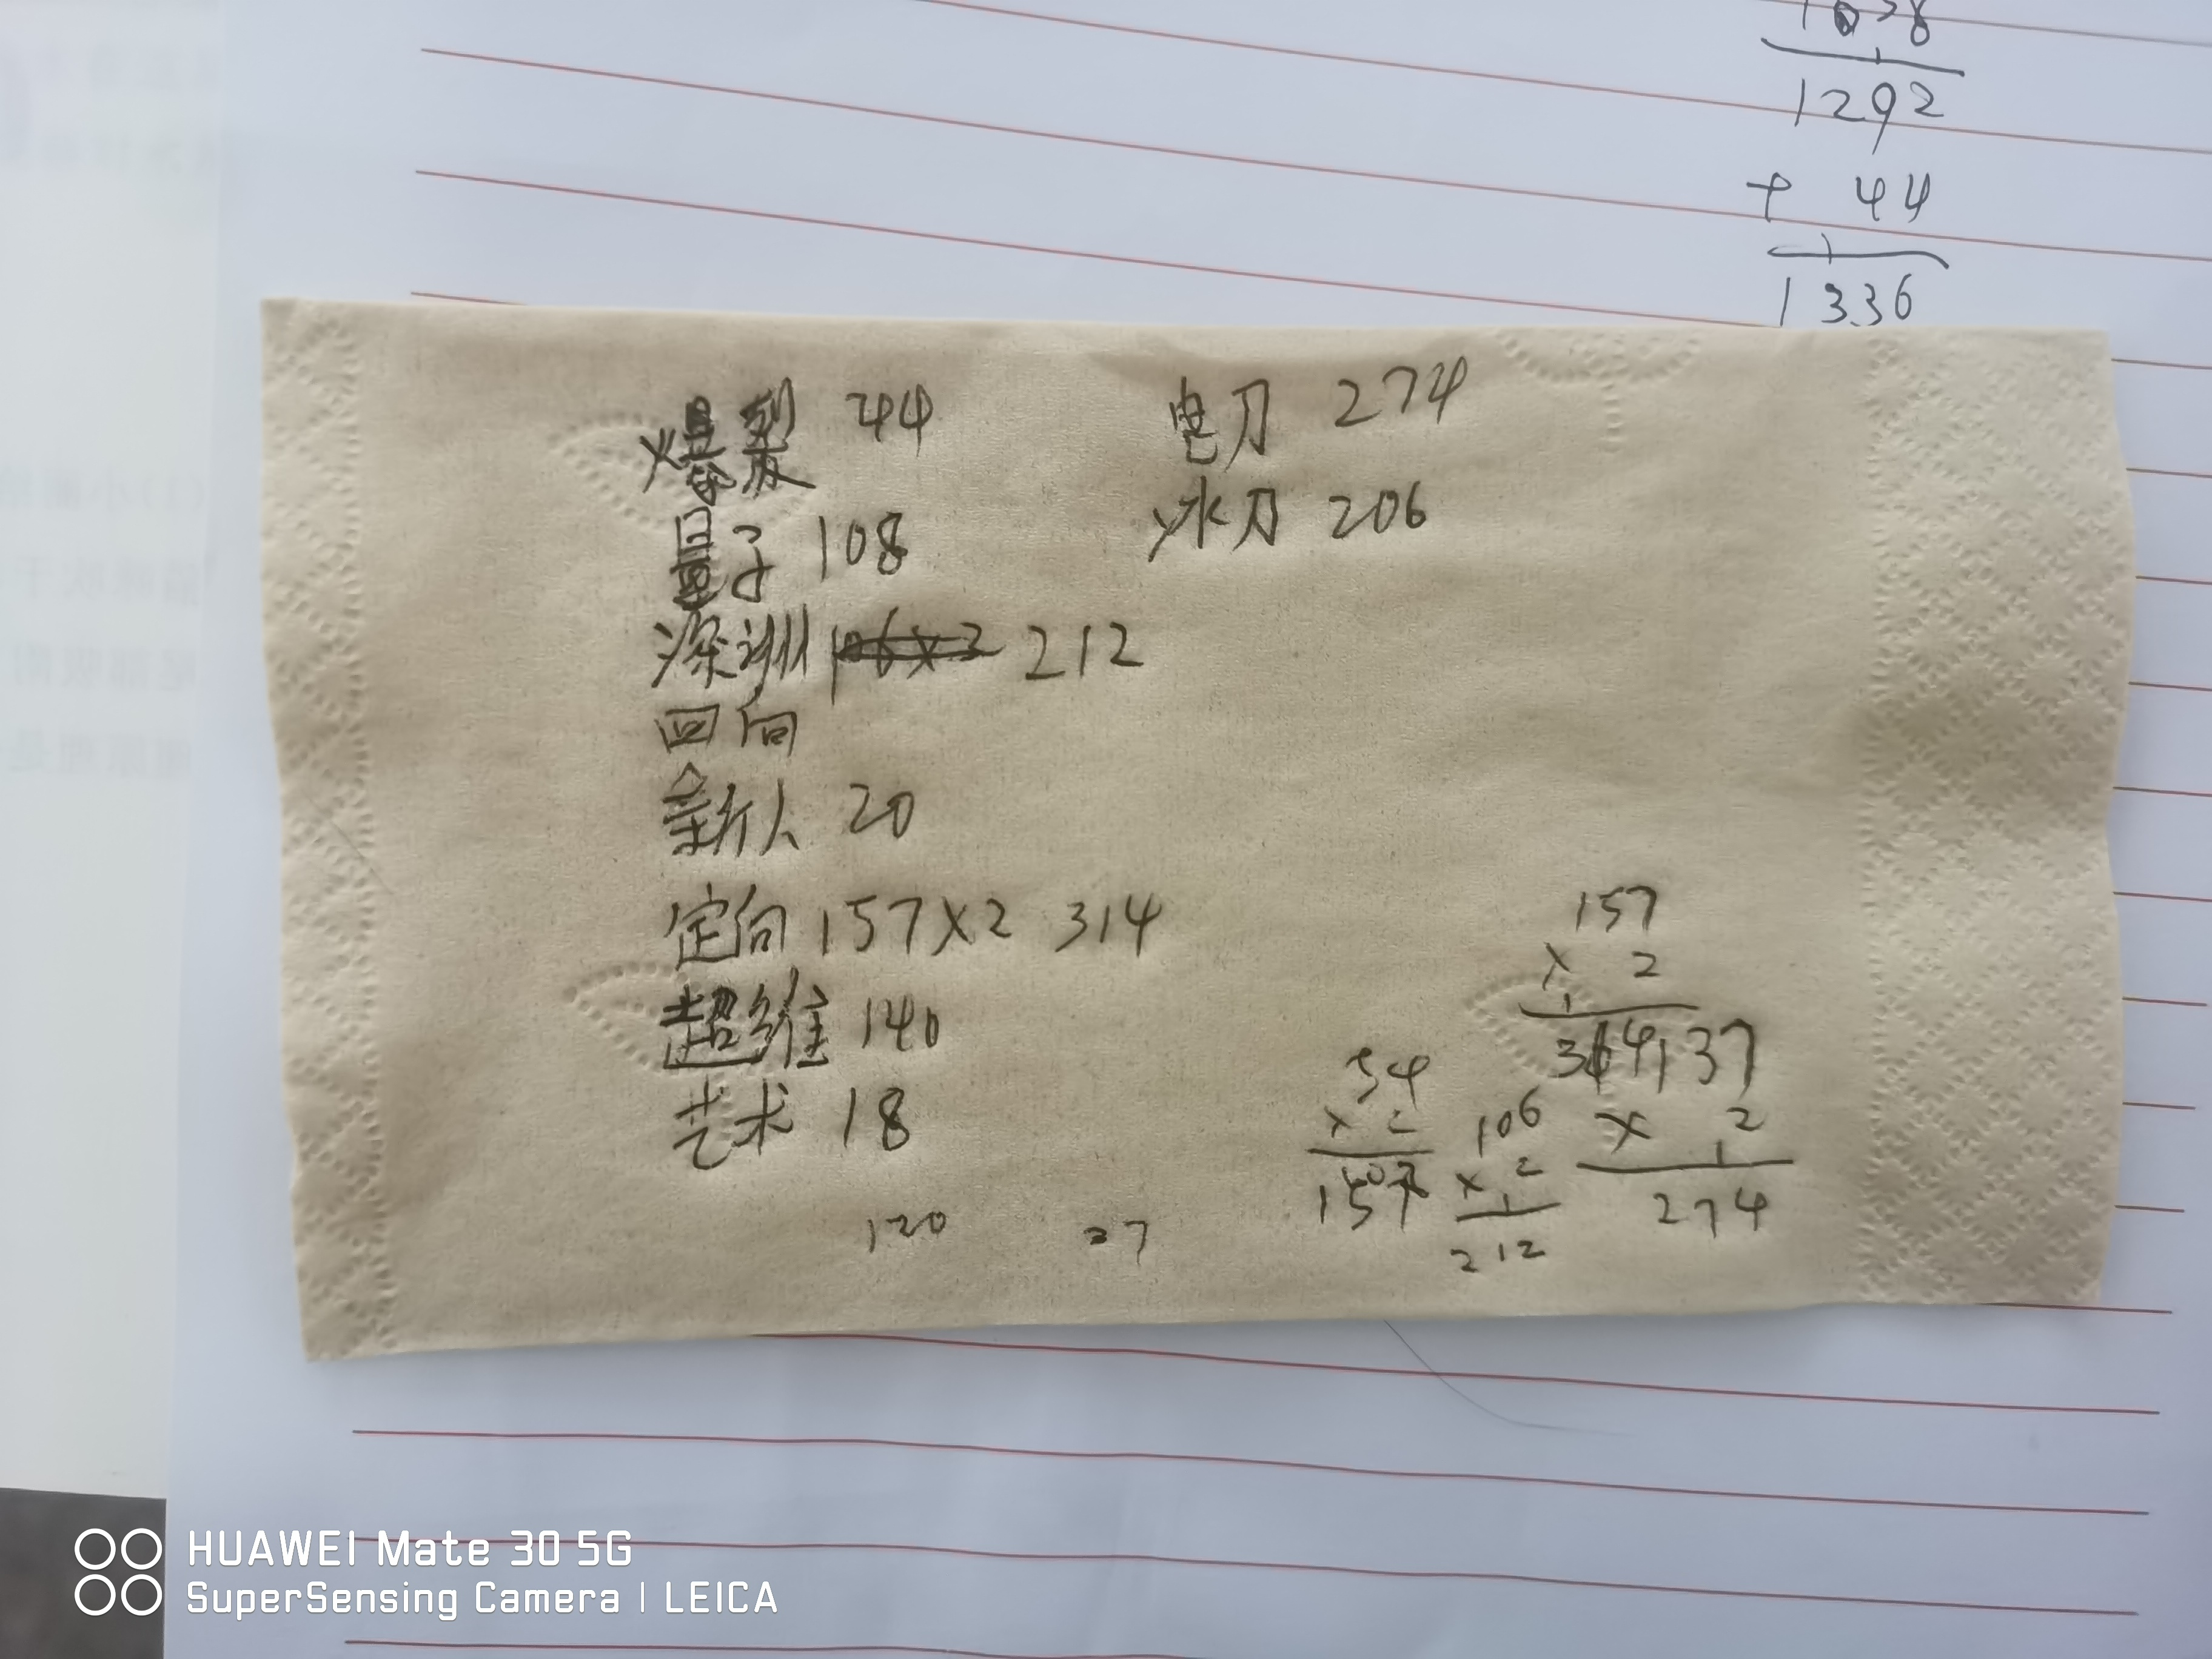 1292
+ 44
1336
爆裂 44
量子 108
深渊 212
四向
新人 20
定向 157×2 314
超维 140
艺术 18
电刀 274
冰刀 206
120 27
157
× 2
314
137
× 2
274
54
× 2
106
× 2
212
HUAWEI Mate 30 5G
SuperSensing Camera | LEICA